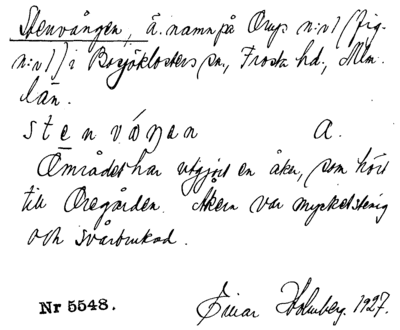 Stenvången, ä. namn på Orups n:o 1 (Jfg-
n:o 1) i Bosjöklosters sn., Frosta hd., Mlm.
län.
stenvåŋen A.
Området har utgjort en åker, som hört
till Oregården. Åkern var mycket stenig
och svårbrukad.
Nr 5548. Einar Holmberg. 1927.